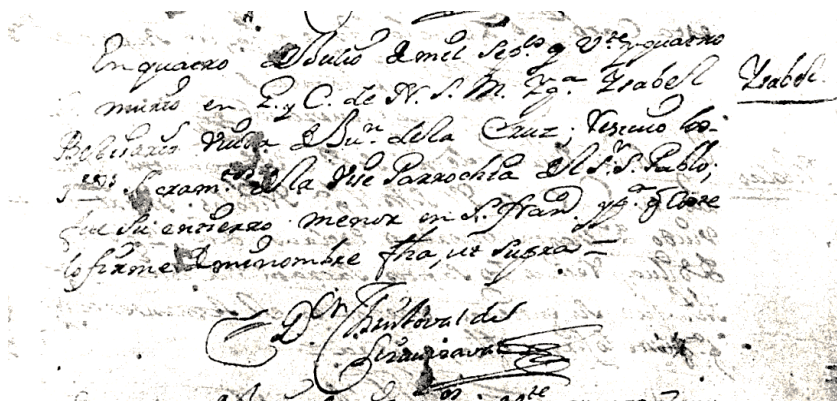 En quatro de Julio de mil Setos y Vte y quatro
murio en P. y C. de N. S. M. Yga Ysabel
Ysabel.
Viuda de Jun de la Cruz; reciuio los
Sacramtos de la Vice Parrochia del Sr. S. Pablo;
fue su entierro menor en S. Fran. y pa q conste
lo firme de mi nombre fha, ut supra =
Dn Christoval del